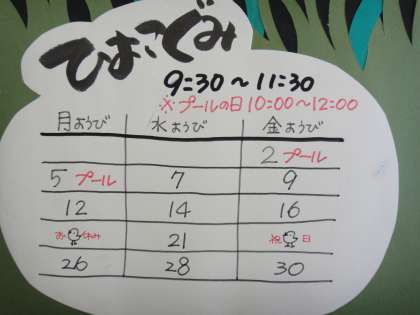 ひよこぐみ
9:30〜11:30
※プールの日10:00〜12:00
月ようび 水ようび 金ようび
2 プール
5 プール 7 9
12 14 16
お休み 21 祝日
26 28 30